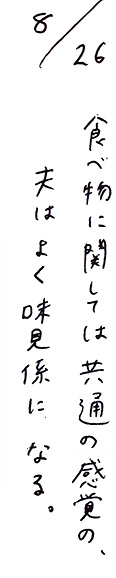 8/26
食べ物に関しては共通の感覚の、
夫はよく味見係になる。